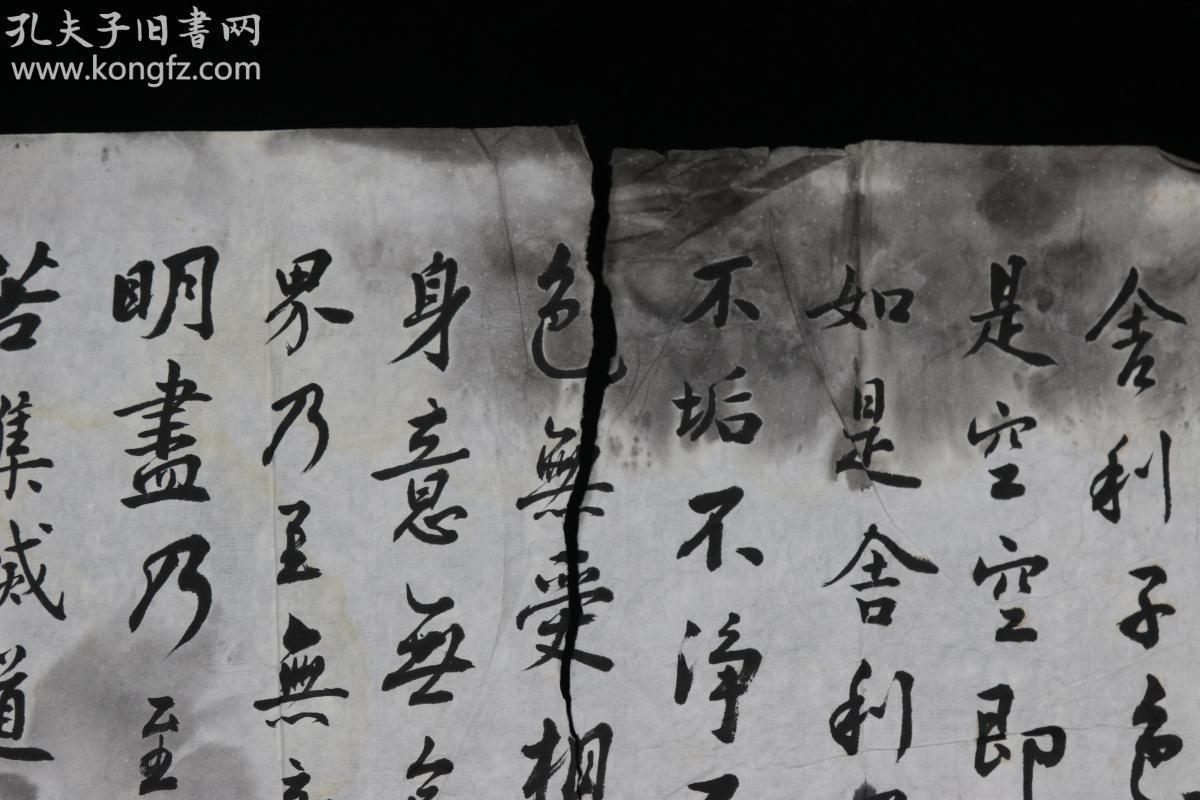 孔夫子旧書网
www.kongfz.com
舍利子色
是空空即
如是舍利
不垢不淨不
色無受想
身意無色
界乃至無意
明盡乃至
苦集滅道